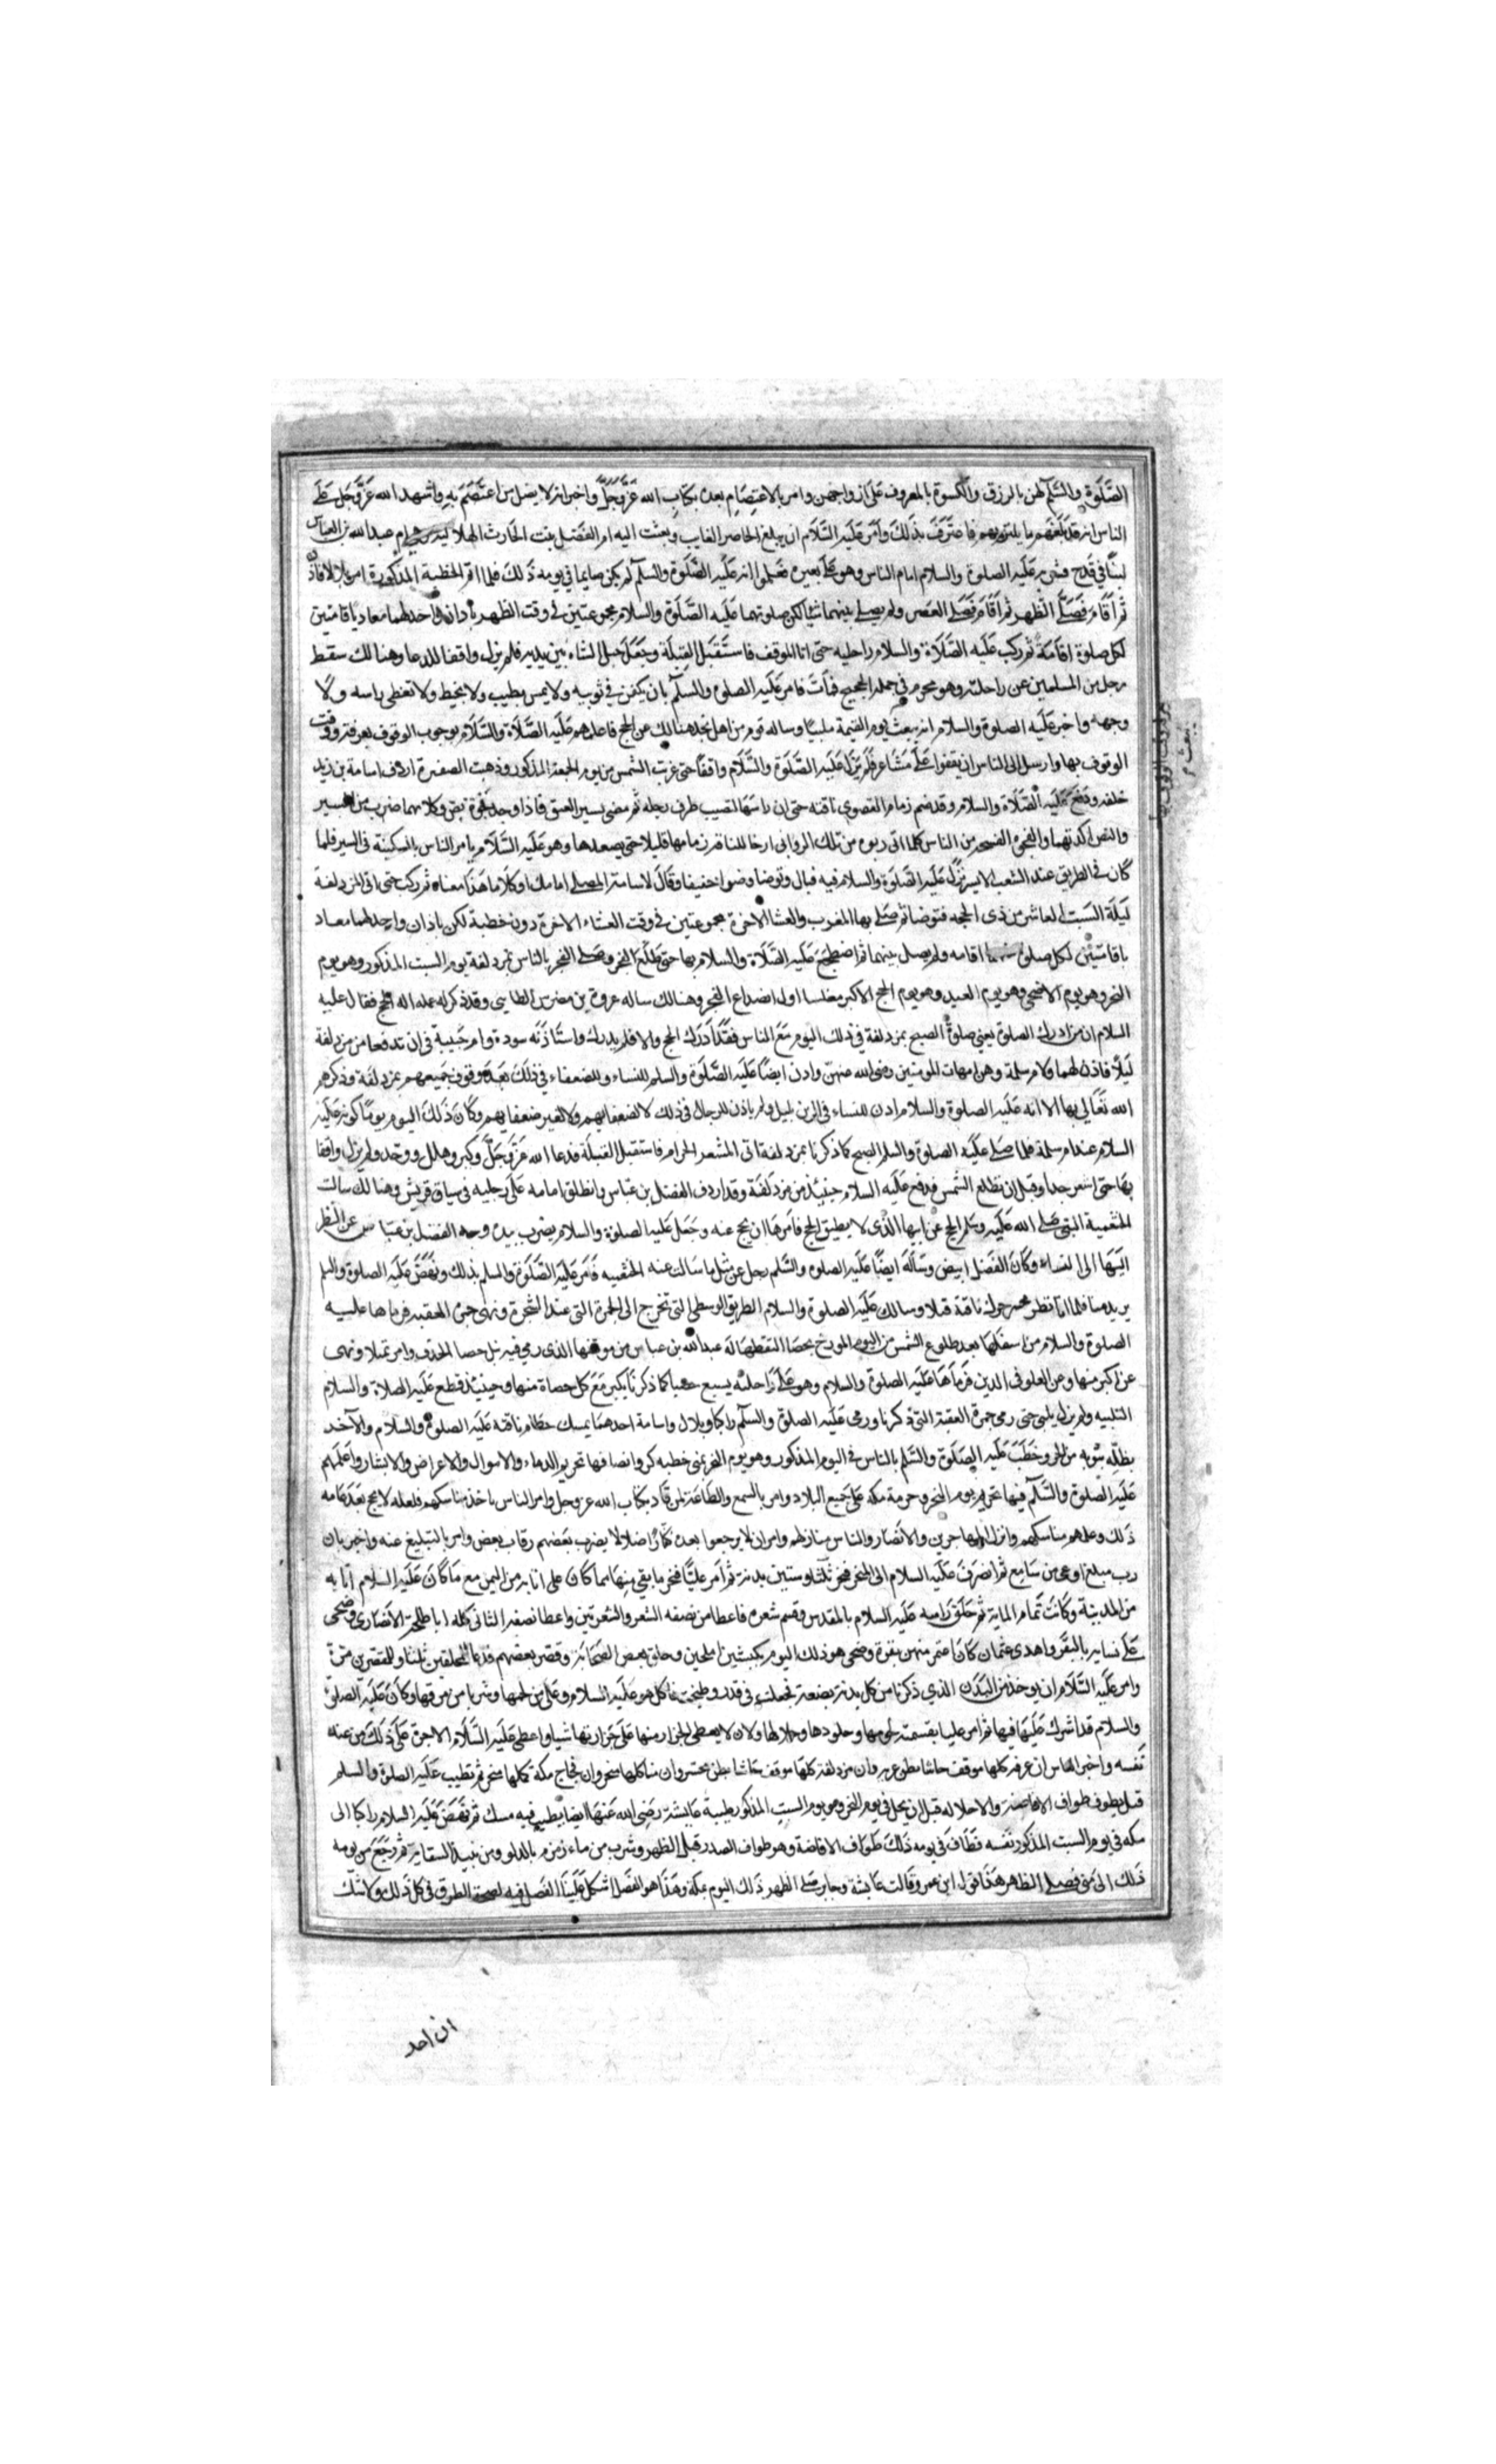 الصَّلوة والسَّلَم لهن بالرزق والكسوة بالمعروف عَلَى ازواجهن وامر بالاعتِصَامِ بعده بكتاب الله عَزَّوَجَلَّ واخبر انه لا يضل من اعتَصَمَ بِهِ واشهد الله عَزَّوَجَل عَلَى
الناس انه قد بلغهم ما يلتزمهم فاعترَفَ بذلك وَأمَر عَلَيه السَّلَام ان يبلغ الحاضر الغايب وبعثت اليه ام الفَضل بنت الحَارث الهلالية وهي ام عبد الله بن العباس
لبنًا في قدح فشربه عَلَيه الصلوة والسلام امام الناس وهو عَلَى بعيره فعَلموا انه عَلَيه الصَّلَوة والسلم لم يكن صايما في يومه ذَلك فلما اتم الخطبة المذكورة امر بلالا فاذن
ثم أقَامَ فَصَلَّى الظهر ثم أقَامَ فَصَلى العَصر ولم يصلى بينهما شيا لكن صلوتهما عَلَيه الصَّلَوة والسلام مجموعتين فى وقت الظهر باذان واحد لهما معا وباقامتين
لكل صلوة اقَامَة ثم ركب عَلَيه الصَّلَاة والسلام راحلته حتى اتا الموقف فاستَقبَل القِبلَة وجَعَلَ حبل المشاه بَين يديه فلم يزل واقفا للدعا وهنالك سقط
رجل من المسلمين عن راحلته وهو محرم في جمله الحجيج فَمات فامر عَلَيه الصلوة والسلم بان يكفن في ثوبيه ولا يمس بطيب ولا يحنط ولا تغطى راسه ولا
وجهه واخبر عَلَيه الصلوة والسلام انه يبعث يوم القيمة ملبيًا وساله قوم من اهل نجد هنالك عن الحج فاعلمهم عَلَيه الصَّلَاة والسَّلَام بوجوب الوقوف بعرفة ووقت
الوقوف بها وارسل الى الناس ان يقفوا عَلَى مشَاعرهم فلم يَزَل عَلَيه الصَّلَوة والسَّلَام واقفًا حتى غربت الشمس من يوم الجمعة المذكور وذهبت الصفرة اردف اسامة بن زيد
خلفه ودفع عَلَيه الصَّلَاة والسلام وقد ضم زمام القصوى ناقته حتى ان راسَهَا لتصيب طرف رجله ثم مضى يسير العنق فاذا وجد فجوة نص وكلاهما ضرب من السير
والنص اكدتهما والفجوه الفسحه من الناس كلما اتى ربوه من تلك الروابى ارخا للناقه زمامها قليلا حتى يصعدها وهو عَلَيه السَّلَام يامر الناس بالسكينة فى السير فلما
كَان فى الطريق عند الشعب الايسر نزل عَلَيه الصَّلَوة والسلام فيه فبال وتوضا وضوا خفيفا وقَالَ لاسامة المصلى امامك او كلَاما هَذَا معناه ثم ركب حتى اتى المزدلفة
لَيلَة السبت العاشر من ذى الحجه فتوضا ثم صَلى بها المغرب والعشا الاخرة مجموعتين فى وقت العشاء الاخرة دون خطبة لكن باذان واحد لهما معا و
باقامَتَين لكل صلوة منهما اقامه ولم يصل بينهما ثم اضطجَعَ عَلَيه الصَّلَاة والسلام بها حتى طَلَعَ الفجر وصَلى الفجر بالناس بمزدلفة يوم السبت المذكور وهو يوم
النحر وهو يوم الاضحى وهو يوم العيد وهو يوم الحج الاكبر مغلسا اول انصداع الفجر وهنالك ساله عروة بن مضرس الطايى وقد ذكر له عمله اله الحج فقال عليه
السلام ان من ادرك الصلوة يعني صلوة الصبح بمزدلفة في ذلك اليوم مَعَ الناس فقَد أَدرَك الحج والا فلم يدرك واستأذَنَه سودة وام حبيبة في ان تدفعا من مزدلفة
لَيلًا فاذن لهما ولام سلمة وهن امهات المومنين رضى الله عنهن واذن ايضًا عَلَيه الصَّلَوة والسلم للنساء وللضعفاء في ذلك بَعدَ وقوف جميعهم بمزدلفة وذكرهم
الله تَعَالَى بها الا انه عَلَيه الصلوة والسلام اذن للنساء فى الرمى بليل ولم ياذن للرجال فى ذلك لا لضعفايهم ولا لغير ضعفايهم وكان ذَلك اليوم يومًا كونه عَلَيه
السلام عند ام سلمة فلما صَلى عَلَيه الصلوة والسلم الصبح كما ذكرنا بمزدلفة اتى المشعر الحرام فاستقبل القبلَة فدعا الله عَزَّوَجَلَّ وكبر وهلل ووحد ولم يزل واقفا
بهَا حتى اسفر جدا وقبل ان تطلع الشمس فدفع عَلَيه السلام حينيذ من مزدلفَة وقد اردف الفضل بن عبَاس وانطلق اسامه عَلَى رجليه فى سباق قريش وهنالك سالت
الخثعمية النبى صَلى الله عَلَيه وسَلم الحج عَن ابيها الذى لا يطيق الحج فامَرهَا ان تحج عنه وجَعَل عَليه الصلوة والسلام يضرب بيده وجه الفضل بن عبَاس عن النظر
الَيَهَا الى النساء وكَانَ الفَضل ابيض وسَألَهَ ايضًا عَلَيه الصلوه والسَّلم رجل عن مثل ما سَالت عنه الخثعميه فَامَر عَلَيه الصَّلَوة والسلم بذلك ونَهَضَ عَلَيه الصلوة والسلم
يريد منا فلما اتا بطن محسر حرك ناقته قليلا وسالك عَلَيه الصلوة والسلام الطريق الوسطى التى تخرج الى الجمرة التى عند الشجرة وهى جمرة العقبه فرماها عليه
الصلوة والسلام من اسفلهَا بعد طلوع الشمس من اليوم المورخ بحصَا التقطهَا لَه عبد الله بن عباس من موقفها الذى رمي فيه مثل حصا الخذف وامر بمثلها ونهى
عن اكبر منها وعن الغلو فى الدين فَرَماهَا عَلَيه الصلوة والسلام وهو عَلَى رَاحلته بسبع حصيا كما ذكرنَا يكبر مَعَ كل حصاة منها وحينيذ قطع عَلَيه الصلاة والسلام
التلبيه ولم يزل يلبى حتى رمى جمرة العقبة التى ذكرنا ورمى عَلَيه الصلوة والسلم راكبا وبلال واسامة احدهمَا يمسك خطام ناقته عَلَيه الصلوة والسلام والآخر
يظلّه بثوبه من الحر وخطَبَ عَلَيه الصَلَوة والسَّلم بالناس فى اليوم المذكور وهو يوم النحر بمنى خطبه كررها تحريم الدماء والاموال والاعراض والابشار واعلَمَهم
عَلَيه الصلوة والسَّلَم فيها تحريم يوم النحر وحرمة مكه عَلَى جَميع البلاد وامر بالسمع والطَاعَة لمن قَاد بكتَاب الله عز وجل وامر الناس باخذ مناسكهم فلعله لا يحج بَعدَ عَامه
ذَلك وعلمهم مناسكهم وانزل المهاجرين والانصَار والناس منازلهم وامر ان لا يرجعوا بعده كفارًا ضلالا يضرب بَعضهم رقاب بعض وامر بالتبليغ عنه واخبر بان
رب مبلغ اوعى من سَامع ثم انصَرَفَ عَلَيه السلام الى المنحر فنحر ثلثا وستين بدنة ثم امر عليًا فنحر ما بقي منهَا مما كان على اتا به من اليمن مع مَا كَانَ عَلَيه السلام اتا به
من المدينة وكانَت تمَام الماية ثم حَلَقَ رَاسه عَلَيه السلام المقدس وقسم شعره فاعطا من نصفه الشعر والشعرتين واعطا نصفه الثانى كله ابا طلحة الانصَارى وضحى
عَلَى نسايه بالبقر واهدى عَمن كَانَ اعتمر منهن بقرة وضحى هو ذلك اليوم بكبشين املحين وحلق بعض الصَحَابَة وقصر بعضهم فدَعَا للمحلقين ثلثا وللمقصرين مَرّة
وامر عَلَيه السَّلَام ان يوخذ من البدن الذي ذكرنا من كل بدنة بضعة فجعلت فى قدر وطبخت فاكل هو عَلَيه السلام وعَلى من لحمها وشربا من مرقها وكَانَ عَلَيه الصلوة
والسلام قد اشرك عَلَيا فيها ثم امر عليا بقسمة لحومها وجلودها وجلالها وان لا يعطى الجزار منها عَلَى جزارتها شيا واعطى عَلَيه السَّلَام الاجرة عَلَى ذَلك من عنه
نَفسه واخبر الناس ان عرفه كلها موقف حاشا بطن عرنه وان مزدلفة كلهَا موقف حَاشَا بطن محسر وان منا كلها منحر وان فجاج مكة كلها منحر ثم تطيب عَلَيه الصلوة والسلم
قبل يطوف طواف الافاضة والاحلاله قبل ان يحل في يوم النحر وهو يوم السبت المذكور طيبة عايشة رَضِى الله عَنهَا ايضا بطيب فيه مسك ثم نهَضَ عَلَيه السلام راكبا الى
مكه فى يوم السبت المذكور نَفسه فطَافَ فى يومه ذلك طَوَاف الافاضة وهو طواف الصدر قبل الظهر وشرب من ماء زمزم بالدلو ومن نبيذ السقاية ثم رجَعَ من يومه
ذلك الى منى فصلى الظهر هَذَا قول ابن عمر وقَالت عَايشة وجابر صَلى الظهر ذلك اليوم بمكه وهَذَا هو الفَصل اشكل عَلَينَا الفَصل فيه لصحة الطرق فى كل ذلك ولا شك
ان احد